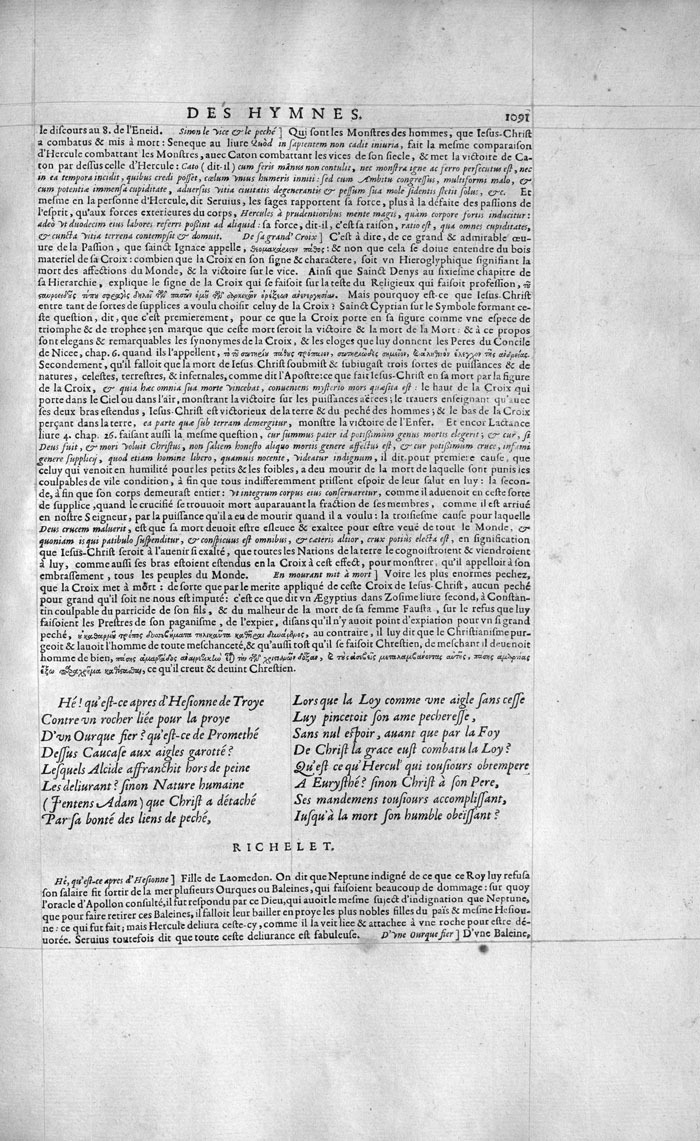 DES HYMNES. 1091
le discours au 8. de l'Eneid. Sinon le vice & le peché] Qui sont les Monstres des hommes, que Iesus-Christ
a combatus & mis à mort: Seneque au liure Quòd in sapientem non cadit iniuria, fait la mesme comparaison
d'Hercule combattant les Monstres, auec Caton combattant les vices de son siecle, & met la victoire de Ca-
ton par dessus celle d'Hercule: Cato (dit-il) cum feris manus non contulit, nec monstra igne ac ferro persecutus est, nec
in ea tempora incidit, quibus credi posset, cælum vnius humeris inniti: sed cum Ambitu congressus, multiformi malo, &
cum potentiæ immensa cupiditate, aduersus vitia ciuitatis degenerantis & pessum sua mole sidentis stetit solus, &c. Et
mesme en la personne d'Hercule, dit Seruius, les sages rapportent sa force, plus à la défaite des passions de
l'esprit, qu'aux forces exterieures du corps, Hercules à prudentioribus mente magis, quàm corpore fortis inducitur:
adeò vt duodecim eius labores referri possint ad aliquid: sa force, dit-il, c'est sa raison, ratio est, qua omnes cupiditates,
& cuncta vitia terrena contempsit & domuit. De sa grand' Croix] C'est à dire, de ce grand & admirable œu-
ure de la Passion, que sainct Ignace appelle, & non que cela se doiue entendre du bois
materiel de sa Croix: combien que la Croix en son signe & charactere, soit vn Hieroglyphique signifiant la
mort des affections du Monde, & la victoire sur le vice. Ainsi que Sainct Denys au sixiesme chapitre de
sa Hierarchie, explique le signe de la Croix qui se faisoit sur la teste du Religieux qui faisoit profession,
Mais pourquoy est-ce que Iesus-Christ
entre tant de sortes de supplices a voulu choisir celuy de la Croix? Sainct Cyprian sur le Symbole formant ce-
ste question, dit, que c'est premierement, pour ce que la Croix porte en sa figure comme vne espece de
triomphe & de trophee; en marque que ceste mort seroit la victoire & la mort de la Mort: & à ce propos
sont elegans & remarquables les synonymes de la Croix, & les eloges que luy donnent les Peres du Concile
de Nicee, chap. 6. quand ils l'appellent,
Secondement, qu'il falloit que la mort de Iesus-Christ soubmist & subiugast trois sortes de puissances & de
natures, celestes, terrestres, & infernales, comme dit l'Apostre: ce que fait Iesus-Christ en sa mort par la figure
de la Croix, & quia hæc omnia sua morte vincebat, conueniens mysterio mors quæsita est: le haut de la Croix qui
porte dans le Ciel ou dans l'air, monstrant la victoire sur les puissances aërees; le trauers enseignant qu'auec
ses deux bras estendus, Iesus-Christ est victorieux de la terre & du peché des hommes; & le bas de la Croix
perçant dans la terre, ea parte quæ sub terram demergitur, monstre la victoire de l'Enfer. Et encor Lactance
liure 4. chap. 26. faisant aussi la mesme question, cur summus pater id potissimùm genus mortis elegerit; & cur, si
Deus fuit, & mori voluit Christus, non saltem honesto aliquo mortis genere affectus est, & cur potissimùm cruce, infami
genere supplicij, quod etiam homine libero, quamuis nocente, videatur indignum, il dit, pour premiere cause, que
celuy qui venoit en humilité pour les petits & les foibles, a deu mourir de la mort de laquelle sont punis les
coulpables de vile condition, à fin que tous indifferemment prissent espoir de leur salut en luy: la secon-
de, à fin que son corps demeurast entier: vt integrum corpus eius conseruaretur, comme il aduenoit en ceste sorte
de supplice, quand le crucifié se trouuoit mort auparauant la fraction de ses membres, comme il est arriué
en nostre Seigneur, par la puissance qu'il a eu de mourir quand il a voulu: la troisiesme cause pour laquelle
Deus crucem maluerit, est que sa mort deuoit estre esleuee & exaltee pour estre veuë de tout le Monde, &
quoniam is qui patibulo suspenditur, & conspicuus est omnibus, & cæteris altior, crux potiùs electa est, en signification
que Iesus-Christ seroit à l'auenir si exalté, que toutes les Nations de la terre le cognoistroient & viendroient
à luy, comme aussi ses bras estoient estendus en la Croix à cest effect, pour monstrer, qu'il appelloit à son
embrassement, tous les peuples du Monde. En mourant mit à mort] Voire les plus enormes pechez,
que la Croix met à mort: de sorte que par le merite appliqué de ceste Croix de Iesus-Christ, aucun peché
pour grand qu'il soit ne nous est imputé: c'est ce que dit vn Ægyptius dans Zosime liure second, à Constan-
tin coulpable du parricide de son fils, & du malheur de la mort de sa femme Fausta, sur le refus que luy
faisoient les Prestres de son paganisme, de l'expier, disans qu'il n'y auoit point d'expiation pour vn si grand
peché, au contraire, il luy dit que le Christianisme pur-
geoit & lauoit l'homme de toute meschanceté, & qu'aussi tost qu'il se faisoit Chrestien, de meschant il deuenoit
homme de bien,
ce qu'il creut & deuint Chrestien.
Hé! qu'est-ce apres d'Hesionne de Troye
Contre vn rocher liée pour la proye
D'vn Ourque fier? qu'est-ce de Promethé
Dessus Caucase aux aigles garotté?
Lesquels Alcide affranchit hors de peine
Les deliurant? sinon Nature humaine
(I'entens Adam) que Christ a détaché
Par sa bonté des liens de peché,
Lors que la Loy comme vne aigle sans cesse
Luy pincetoit son ame pecheresse,
Sans nul espoir, auant que par la Foy
De Christ la grace eust combatu la Loy?
Qu'est ce qu'Hercul' qui tousiours obtempere
A Eurysthé? sinon Christ à son Pere,
Ses mandemens tousiours accomplissant,
Iusqu'à la mort son humble obeïssant?
RICHELET.
Hé, qu'est-ce apres d'Hesionne] Fille de Laomedon. On dit que Neptune indigné de ce que ce Roy luy refusa
son salaire fit sortir de la mer plusieurs Ourques ou Baleines, qui faisoient beaucoup de dommage: sur quoy
l'oracle d'Apollon consulté, il fut respondu par ce Dieu, qui auoit le mesme suject d'indignation que Neptune,
que pour faire retirer ces Baleines, il falloit leur bailler en proye les plus nobles filles du païs & mesme Hesion-
ne: ce qui fut fait; mais Hercule deliura ceste-cy, comme il la veit liee & attachee à vne roche pour estre dé-
uorée. Seruius toutefois dit que toute ceste deliurance est fabuleuse. D'vne Ourque fier] D'vne Baleine,